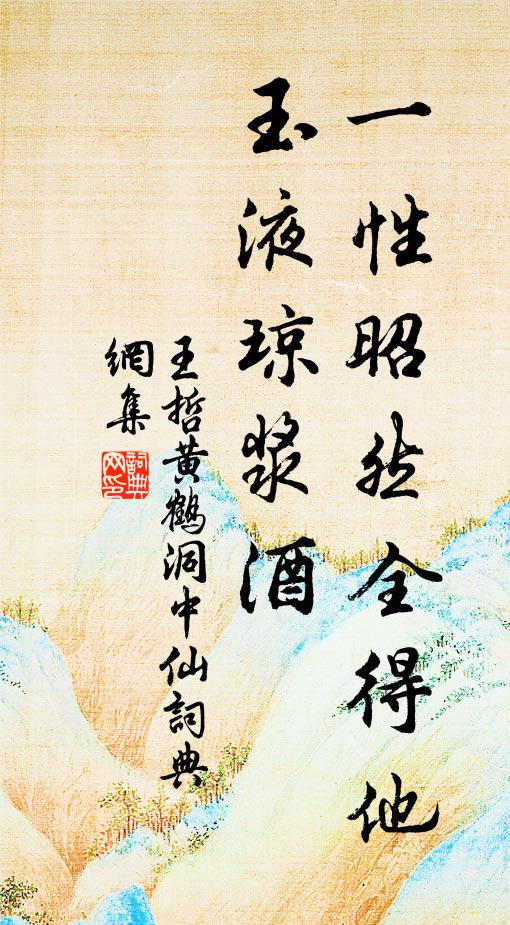 一性昭然全得他
玉液琼浆酒
王哲黄鶴洞中仙詞典
網集
詞典
网印